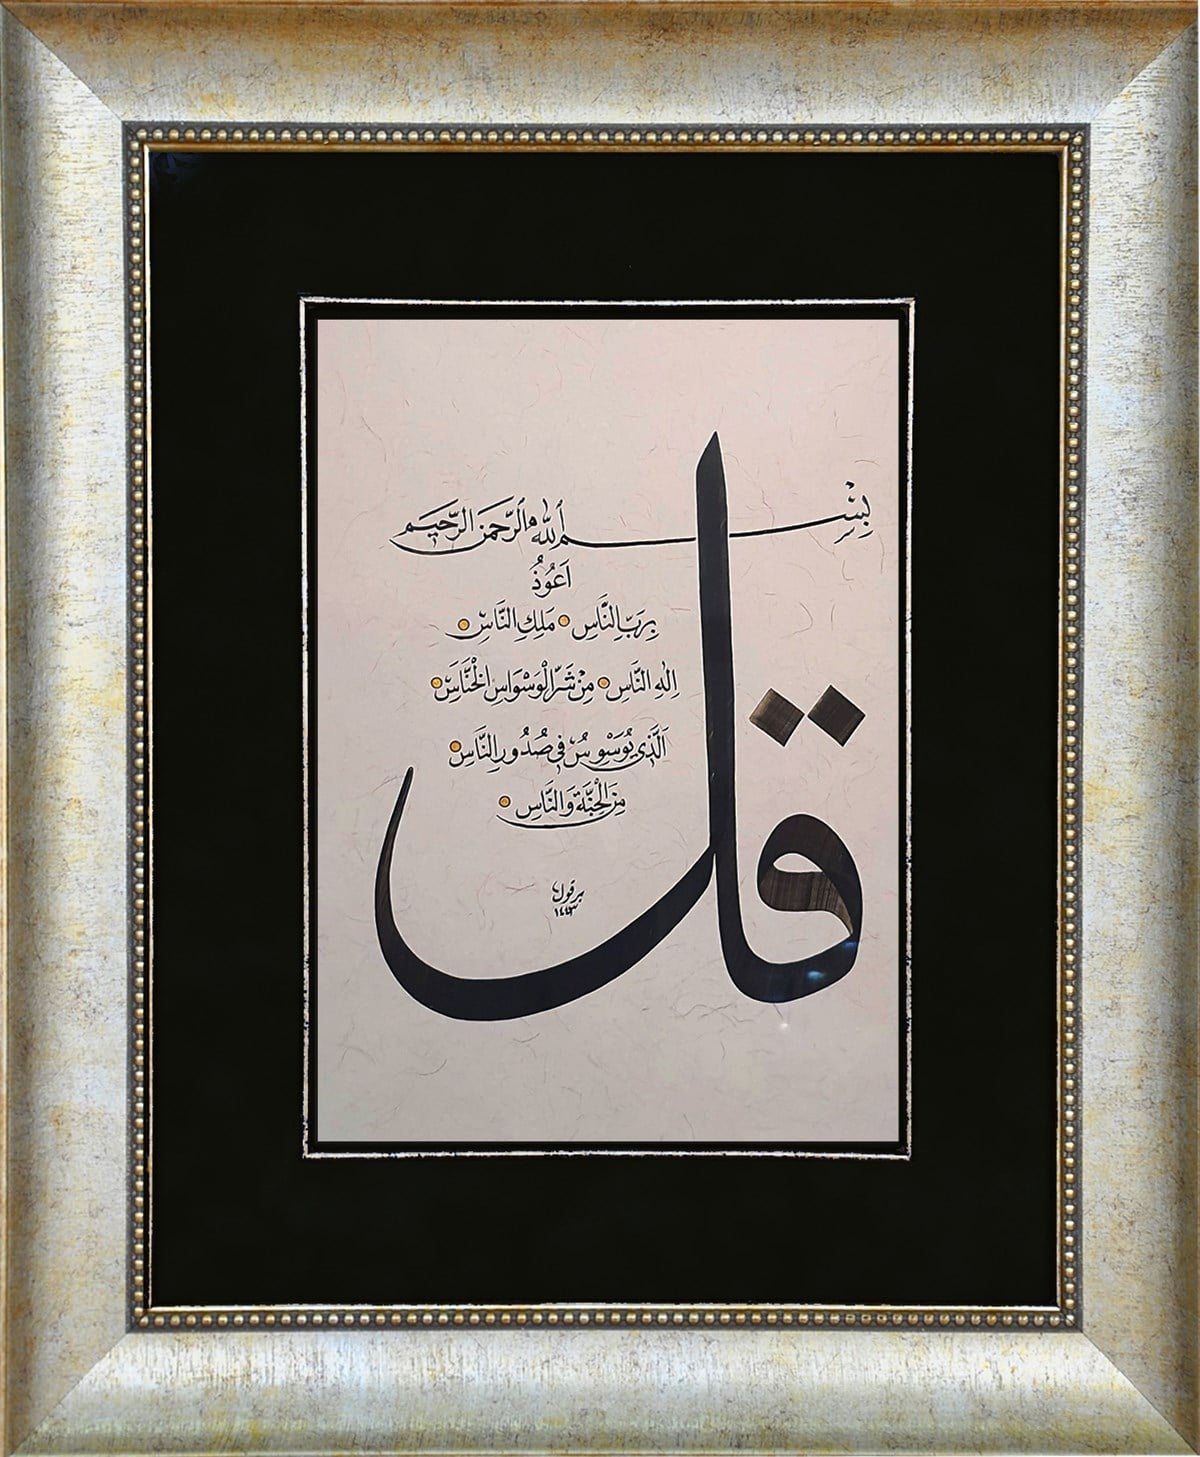 بِسْمِ اللّٰهِ الرَّحْمٰنِ الرَّحِيمِ
قل
اَعُوذُ
بِرَبِّ النَّاسِ مَلِكِ النَّاسِ
اِلٰهِ النَّاسِ مِنْ شَرِّ الْوَسْوَاسِ الْخَنَّاسِ
اَلَّذِي يُوَسْوِسُ فِي صُدُورِ النَّاسِ
مِنَ الْجِنَّةِ وَالنَّاسِ
برقول
١٤٤٣